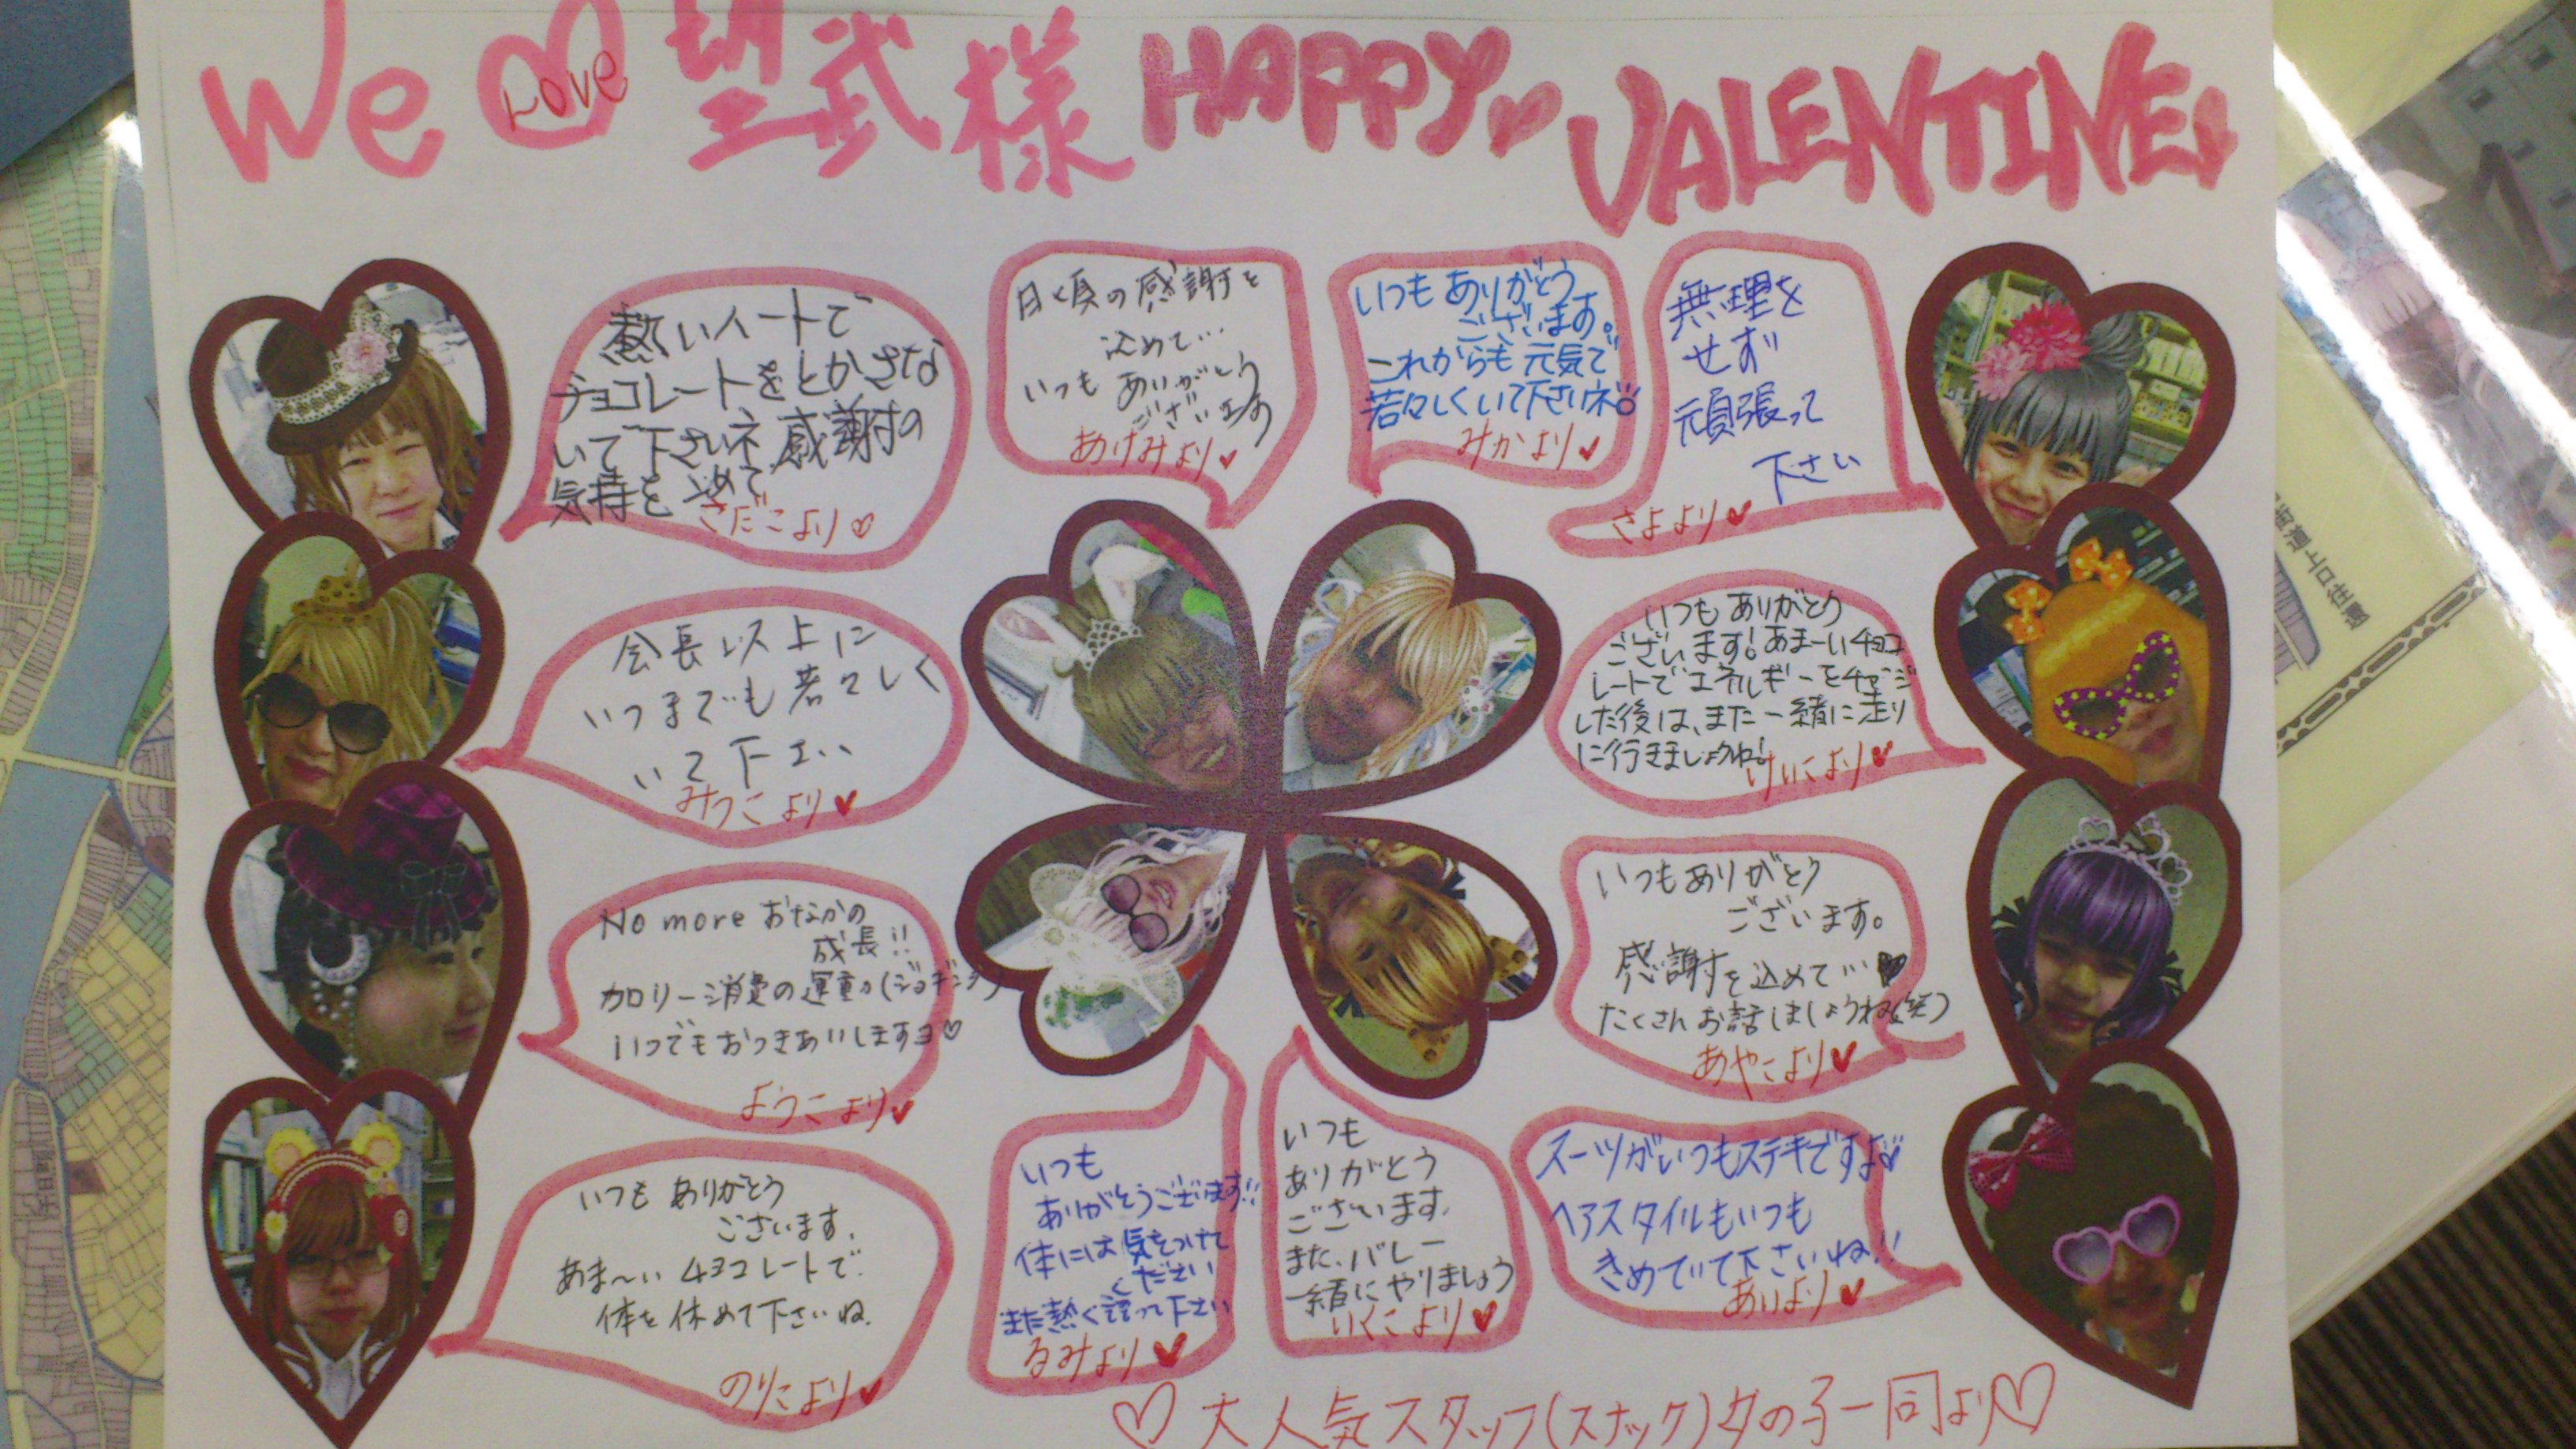 We Love 望武様 HAPPY VALENTINE
熱いハートで
チョコレートをとかさな
いで下さいネ 感謝の
気持を込めて
さだこより
日頃の感謝を
込めて…
いつも ありがとう
ございます
あけみより
いつも ありがとう
ございます。
これからも 元気で
若々しくいて下さいネ
みかより
無理を
せず
頑張って
下さい
さよより
会長以上に
いつまでも若々しく
いて下さい
みつこより
いつも ありがとう
ございます!あまーいチョコ
レートでエネルギーをチャージ
した後は、また一緒に走り
に行きましょうね!
けいこより
No more おなかの
成長!!
カロリー消費の運動(ジョギング)
いつでもおつきあいしますヨ
ようこより
いつもありがとう
ございます。
感謝を込めて…
たくさんお話しましょうね(笑)
あやこより
いつも ありがとう
ございます.
あま〜い チョコレートで
体を休めて下さいね.
のりこより
いつも
ありがとうございます!!
体には気をつけて
ください
また熱く語って下さい
るみより
いつも
ありがとう
ございます.
また、バレー
一緒にやりましょう
いくこより
スーツがいつもステキですよ
ヘアスタイルもいつも
きめていて下さいね!!
あいより
大人気スタッフ(スナック)女の子一同より